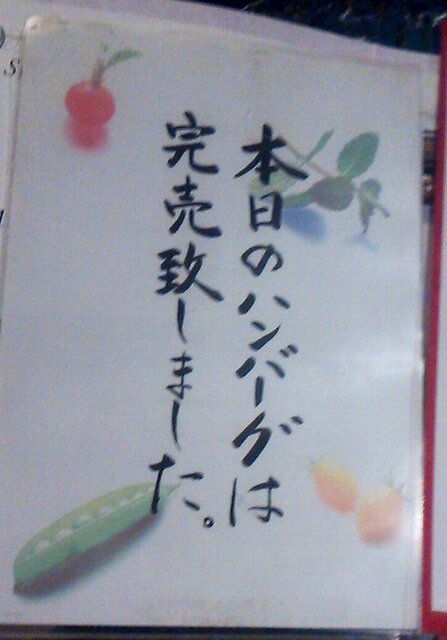 本日のハンバーグは
完売致しました。